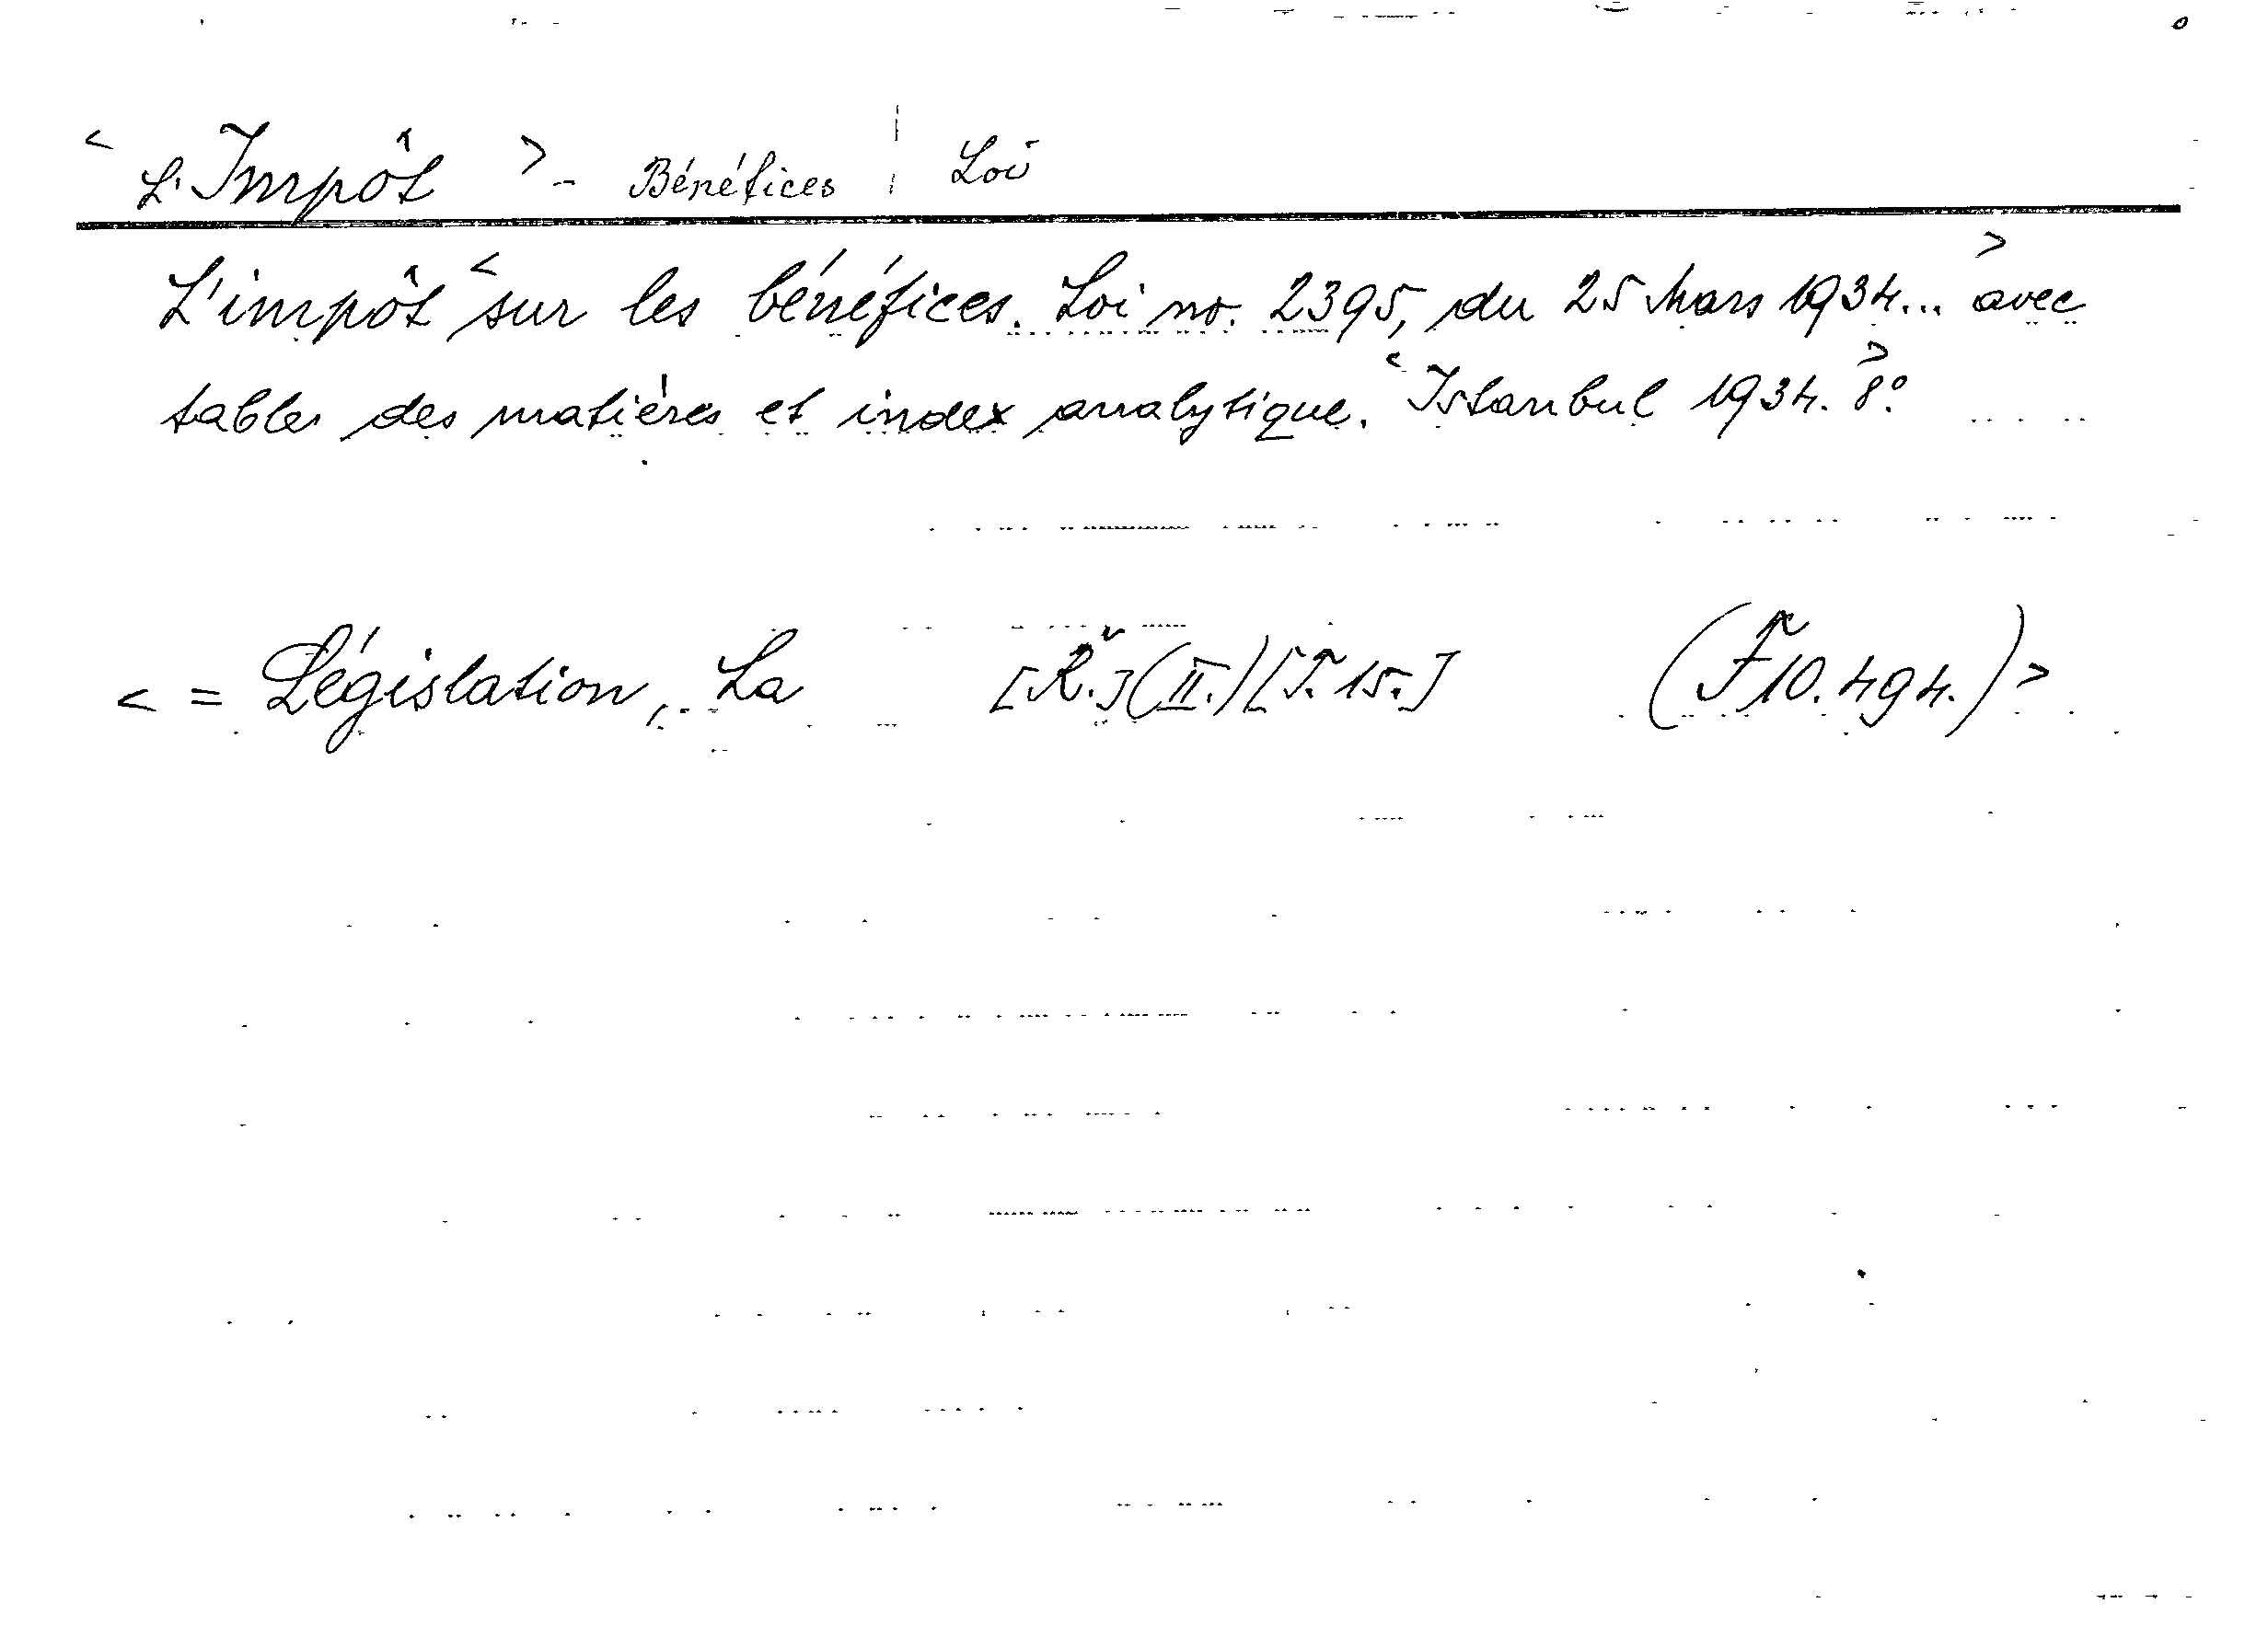 < L'Impôt > - Bénéfices ¦ Loi
L'impôt < sur les bénéfices. Loi no. 2395, du 25 Mars 1934... > avec
tables des matières et index analytique. < Istanbul 1934. > 8°
< = Législation, La [R.] (II.) [T. 15.] (F10.494.) >